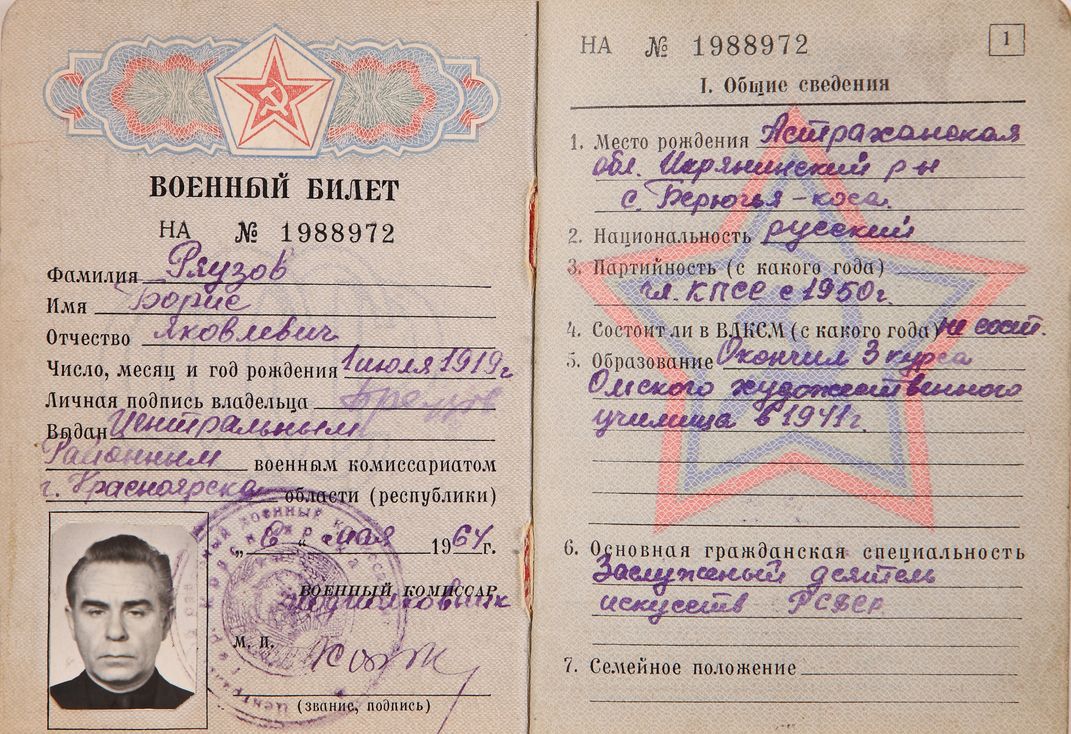 ВОЕННЫЙ БИЛЕТ
НА № 1988972
Фамилия Ряузов
Имя Борис
Отчество Яковлевич
Число, месяц и год рождения 1 июля 1919г
Личная подпись владельца
Выдан Центральным
Районным военным комиссариатом
г. Красноярска области (республики)
„6“ мая 1964г.
ВОЕННЫЙ КОМИССАР
подполковник
М. П.
(звание, подпись)
НА № 1988972
1
I. Общие сведения
1. Место рождения Астраханская
обл. Икрянинский р-н
с. Берючья-коса.
2. Национальность русский
3. Партийность (с какого года)
чл. КПСС с 1950г.
4. Состоит ли в ВЛКСМ (с какого года) не сост.
5. Образование Окончил 3 курса
Омского художественного
училища в 1941г.
6. Основная гражданская специальность
Заслуженый деятель
искусств РСФСР
7. Семейное положение